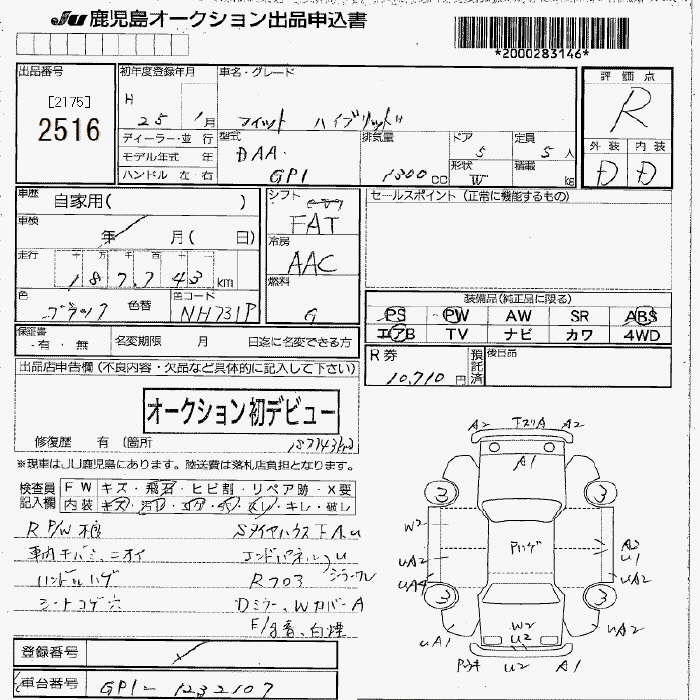 JU 鹿児島オークション出品申込書
*2000283146*
出品番号
[2175]
2516
初年度登録年月
H 25年 1月
車名・グレード
フィット ハイブリッド
評価点
R
外装 内装
D D
ディーラー・並行
モデル年式 年
ハンドル 左 右
型式
DAA-
GP1
排気量
1300cc
ドア
5
定員
5人
形状
W
積載
kg
車歴 自家用( )
車検
年 月( 日)
走行 十 万 千 百 十 一
187,743 km
色
ブラック
色替
色コード
NH731P
シフト
FAT
冷房
AAC
燃料
G
セールスポイント(正常に機能するもの)
装備品(純正品に限る)
PS PW AW SR ABS
エアB TV ナビ カワ 4WD
保証書
有・無
名変期限 月 日迄に名変できる方
R券
10,710円
預託済
後日品
出品店申告欄(不良内容・欠品など具体的に記入して下さい)
オークション初デビュー
修復歴 有 (箇所
187743km
※現車はJU鹿児島にあります。陸送費は落札店負担となります。
検査員記入欄
FW キズ・飛石・ヒビ割・リペア跡・X要
内装 キズ・汚レ・コゲ・穴・スレ・キレ・破レ
R P/W不良
車内キバミ、ニオイ
ハンドルハゲ
シートコゲ穴
SタイヤハウスF A.u
エンドパネルu
R703
シーラーワレ
Dミラー、WカバーA
E/g音、白煙
A2 下スリA A2
A1
3 3
W2
Pハゲ
A3
U1
UA2
UA2
UA4
3 3
W2
U2
UA1
UA2
U2
A1
登録番号
車台番号 GP1-1232107